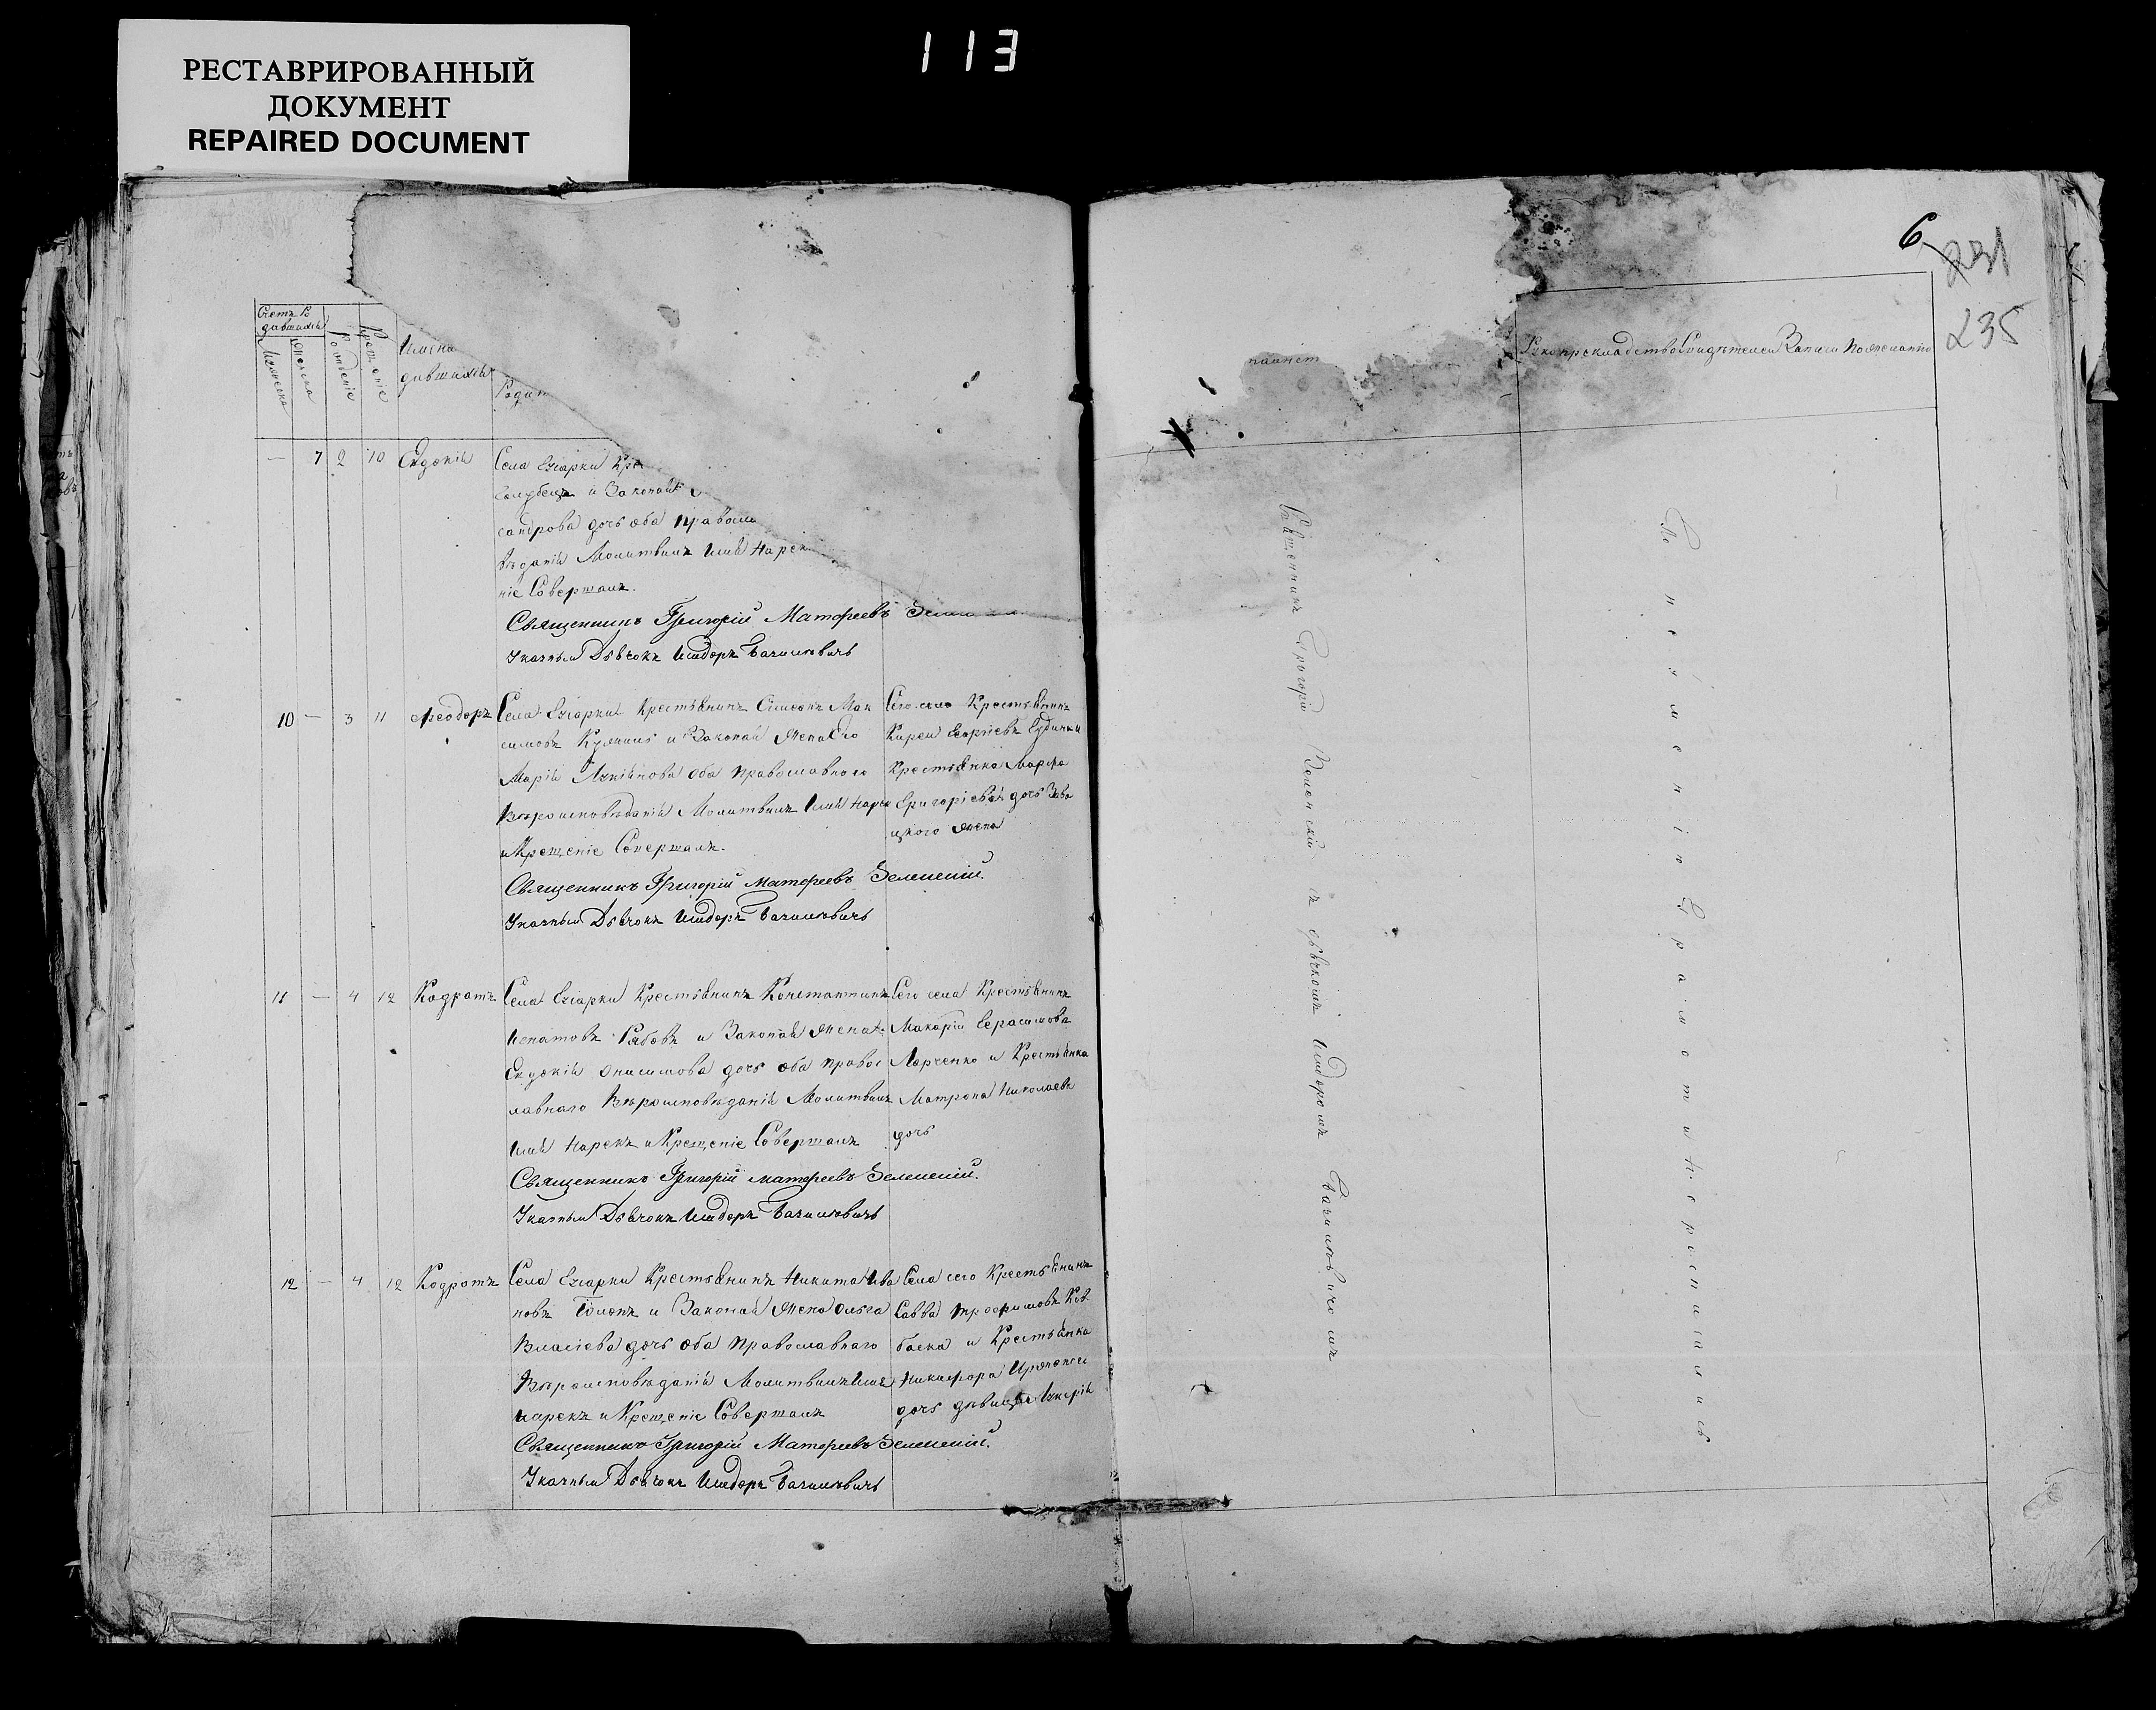 113
РЕСТАВРИРОВАННЫЙ
ДОКУМЕНТ
REPAIRED DOCUMENT
6
231
235
Имена
Рожденіе
Крещеніе
Мужеска
Женска
— 7 2 10 Евдокія
Села Егіарки Кре
и Законая
сандрова дочь оба Правосла
вѣданія Молитвилъ Имя Нарек
ніе Совершалъ.
Священникъ Григорій Матфеевъ
Указный Дьячокъ Исидоръ Базилевичъ
10 — 3 11 Феодоръ
Села Егіарки Крестьянинъ Симеонъ Мак
симовъ и Законая Жена Его
Марія оба Православнаго
Вѣроисповѣданія Молитвилъ Имя Нарекъ
и Крещеніе Совершалъ.
Священникъ Григорій Матфеевъ Зеленскій.
Указный Дьячокъ Исидоръ Базилевичъ
Сего села Крестьянинъ
Кирей Георгіевъ
Крестьянка Марфа
Григоріева дочь Зава
цкого жена
11 — 4 12 Кодратъ
Села Егіарки Крестьянинъ Константинъ
Игнатовъ Рябовъ и Законая Жена
Евдокія Онисимова дочь оба Правос
лавнаго Вѣроисповѣданія Молитвилъ
Имя Нарекъ и Крещеніе Совершалъ
Священникъ Григорій Матфеевъ Зеленскій.
Указный Дьячокъ Исидоръ Базилевичъ
Сего села Крестьянинъ
Макарій Герасимова
Марченко и Крестьянка
Матрона Николаева
дочь
12 — 4 12 Кодратъ
Села Егіарки Крестьянинъ Никита Ива
новъ и Законая Жена Ольга
Власіева дочь оба Православнаго
Вѣроисповѣданія Молитвилъ Имя
нарекъ и Крещеніе Совершалъ
Священникъ Григорій Матфеевъ Зеленскій.
Указный Дьячокъ Исидоръ Базилевичъ
Села сего Крестьянинъ
Савва Трофимовъ Ков
баска и Крестьянка
Никифора
дочь дѣвица
Рукоприкладство Свидѣтелей Записи По желанію
Священникъ Григорій Зеленскій съ дьячкомъ Исидоромъ Базилевичомъ
По неимѣнію Грамоти не росписались